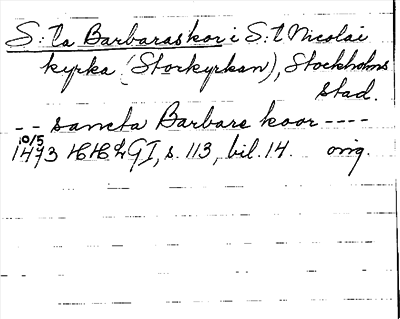 S:ta Barbaraskor i S:t Nicolai
kyrka (Storkyrkan), Stockholms
stad.
-- sancta Barbare koor ----
10/5
1473 HH LGI, s. 113, bil. 14. orig.